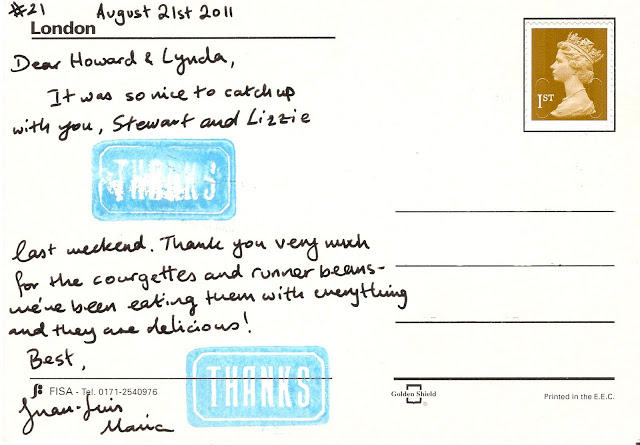 #21 August 21st 2011
London
Dear Howard & Lynda,
It was so nice to catch up
with you, Stewart and Lizzie
THANKS
last weekend. Thank you very much
for the courgettes and runner beans-
we've been eating them with everything
and they are delicious!
Best,
THANKS
FISA - Tel. 0171-2540976
Juan-Luis
Maria
1ST
Golden Shield
Printed in the E.E.C.